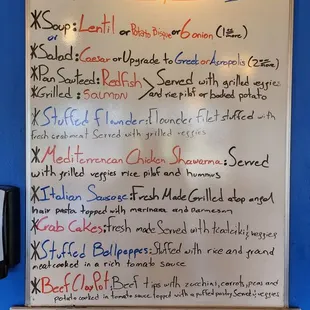 *Soup: Lentil or Potato Bisque or 6 onion (1.50 more)
or
*Salad: Caesar or Upgrade to Greek or Acropolis (2 more)
*Pan Sauteed: Redfish Served with grilled veggies
*Grilled: Salmon and rice pilaf or baked potato
*Stuffed Flounder: Flounder filet stuffed with
fresh crab meat Served with grilled veggies
*Mediterrenean Chicken Shawarma: Served
with grilled veggies rice pilaf and hummus
*Italian Sausage: Fresh Made Grilled atop angel
hair pasta topped with marinara and parmesan
*Crab Cakes: fresh made Served with & veggies
*Stuffed Bellpeppers: Stuffed with rice and ground
meat cooked in a rich tomato sauce
*Beef Clay Pot: Beef tips with zucchini, carrots, peas and
potato cooked in tomato sauce topped with a puffed pastry Served & veggies